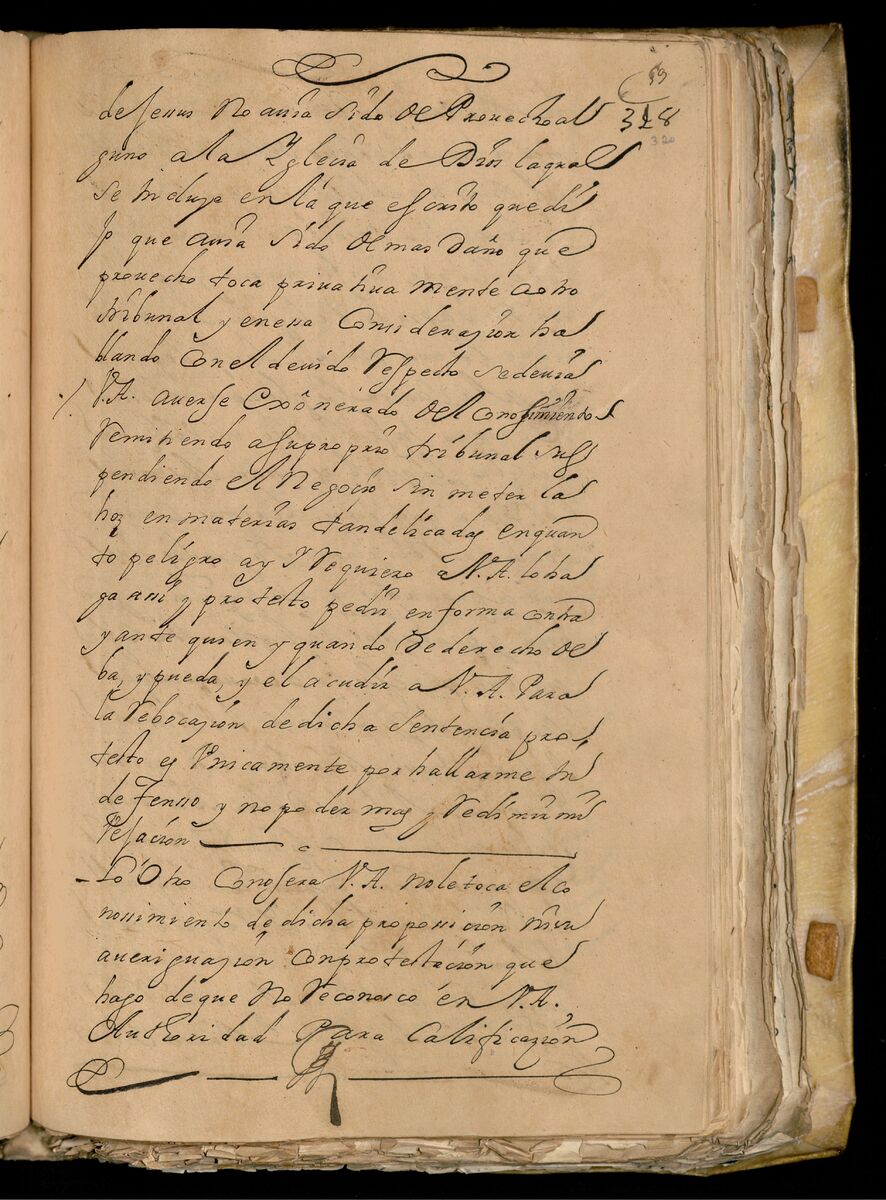 59
328
320
de Jesus no auia sido de Prouecho al
guno a la Yglecia de Dios la qual
se incluye en la que escrito quedi
jo que auia sido de mas Daño que
prouecho toca priuatiuamente a otro
tribunal y en essa Considerazion ha
blando Con el deuido Respecto se deuia
V.A. auerse Exônerado del conosimiento
Remitiendo a su proprio tribunal sus
pendiendo el Negocio sin meter la
hoz en materias tan delicadas en quan
to peligro ay Y Requiero a V.A. lo ha
ga assi y protesto pedir en forma contra
y ante quien y quando de derecho de
ba, y pueda, y el acudir a V.A. Para
la Rebocazion de dicha Sentencia pro
testo es Vnicamente por hallarme in
defensso y no poder mas y Redimir mi
Vejacion
Lo Otro Conosera V.A. no le toca el co
nossimiento de dicha propossicion ni su
aueriguazion con protestacion que
hago de que No Reconosco en V.A.
Authoridad Para Calificazion